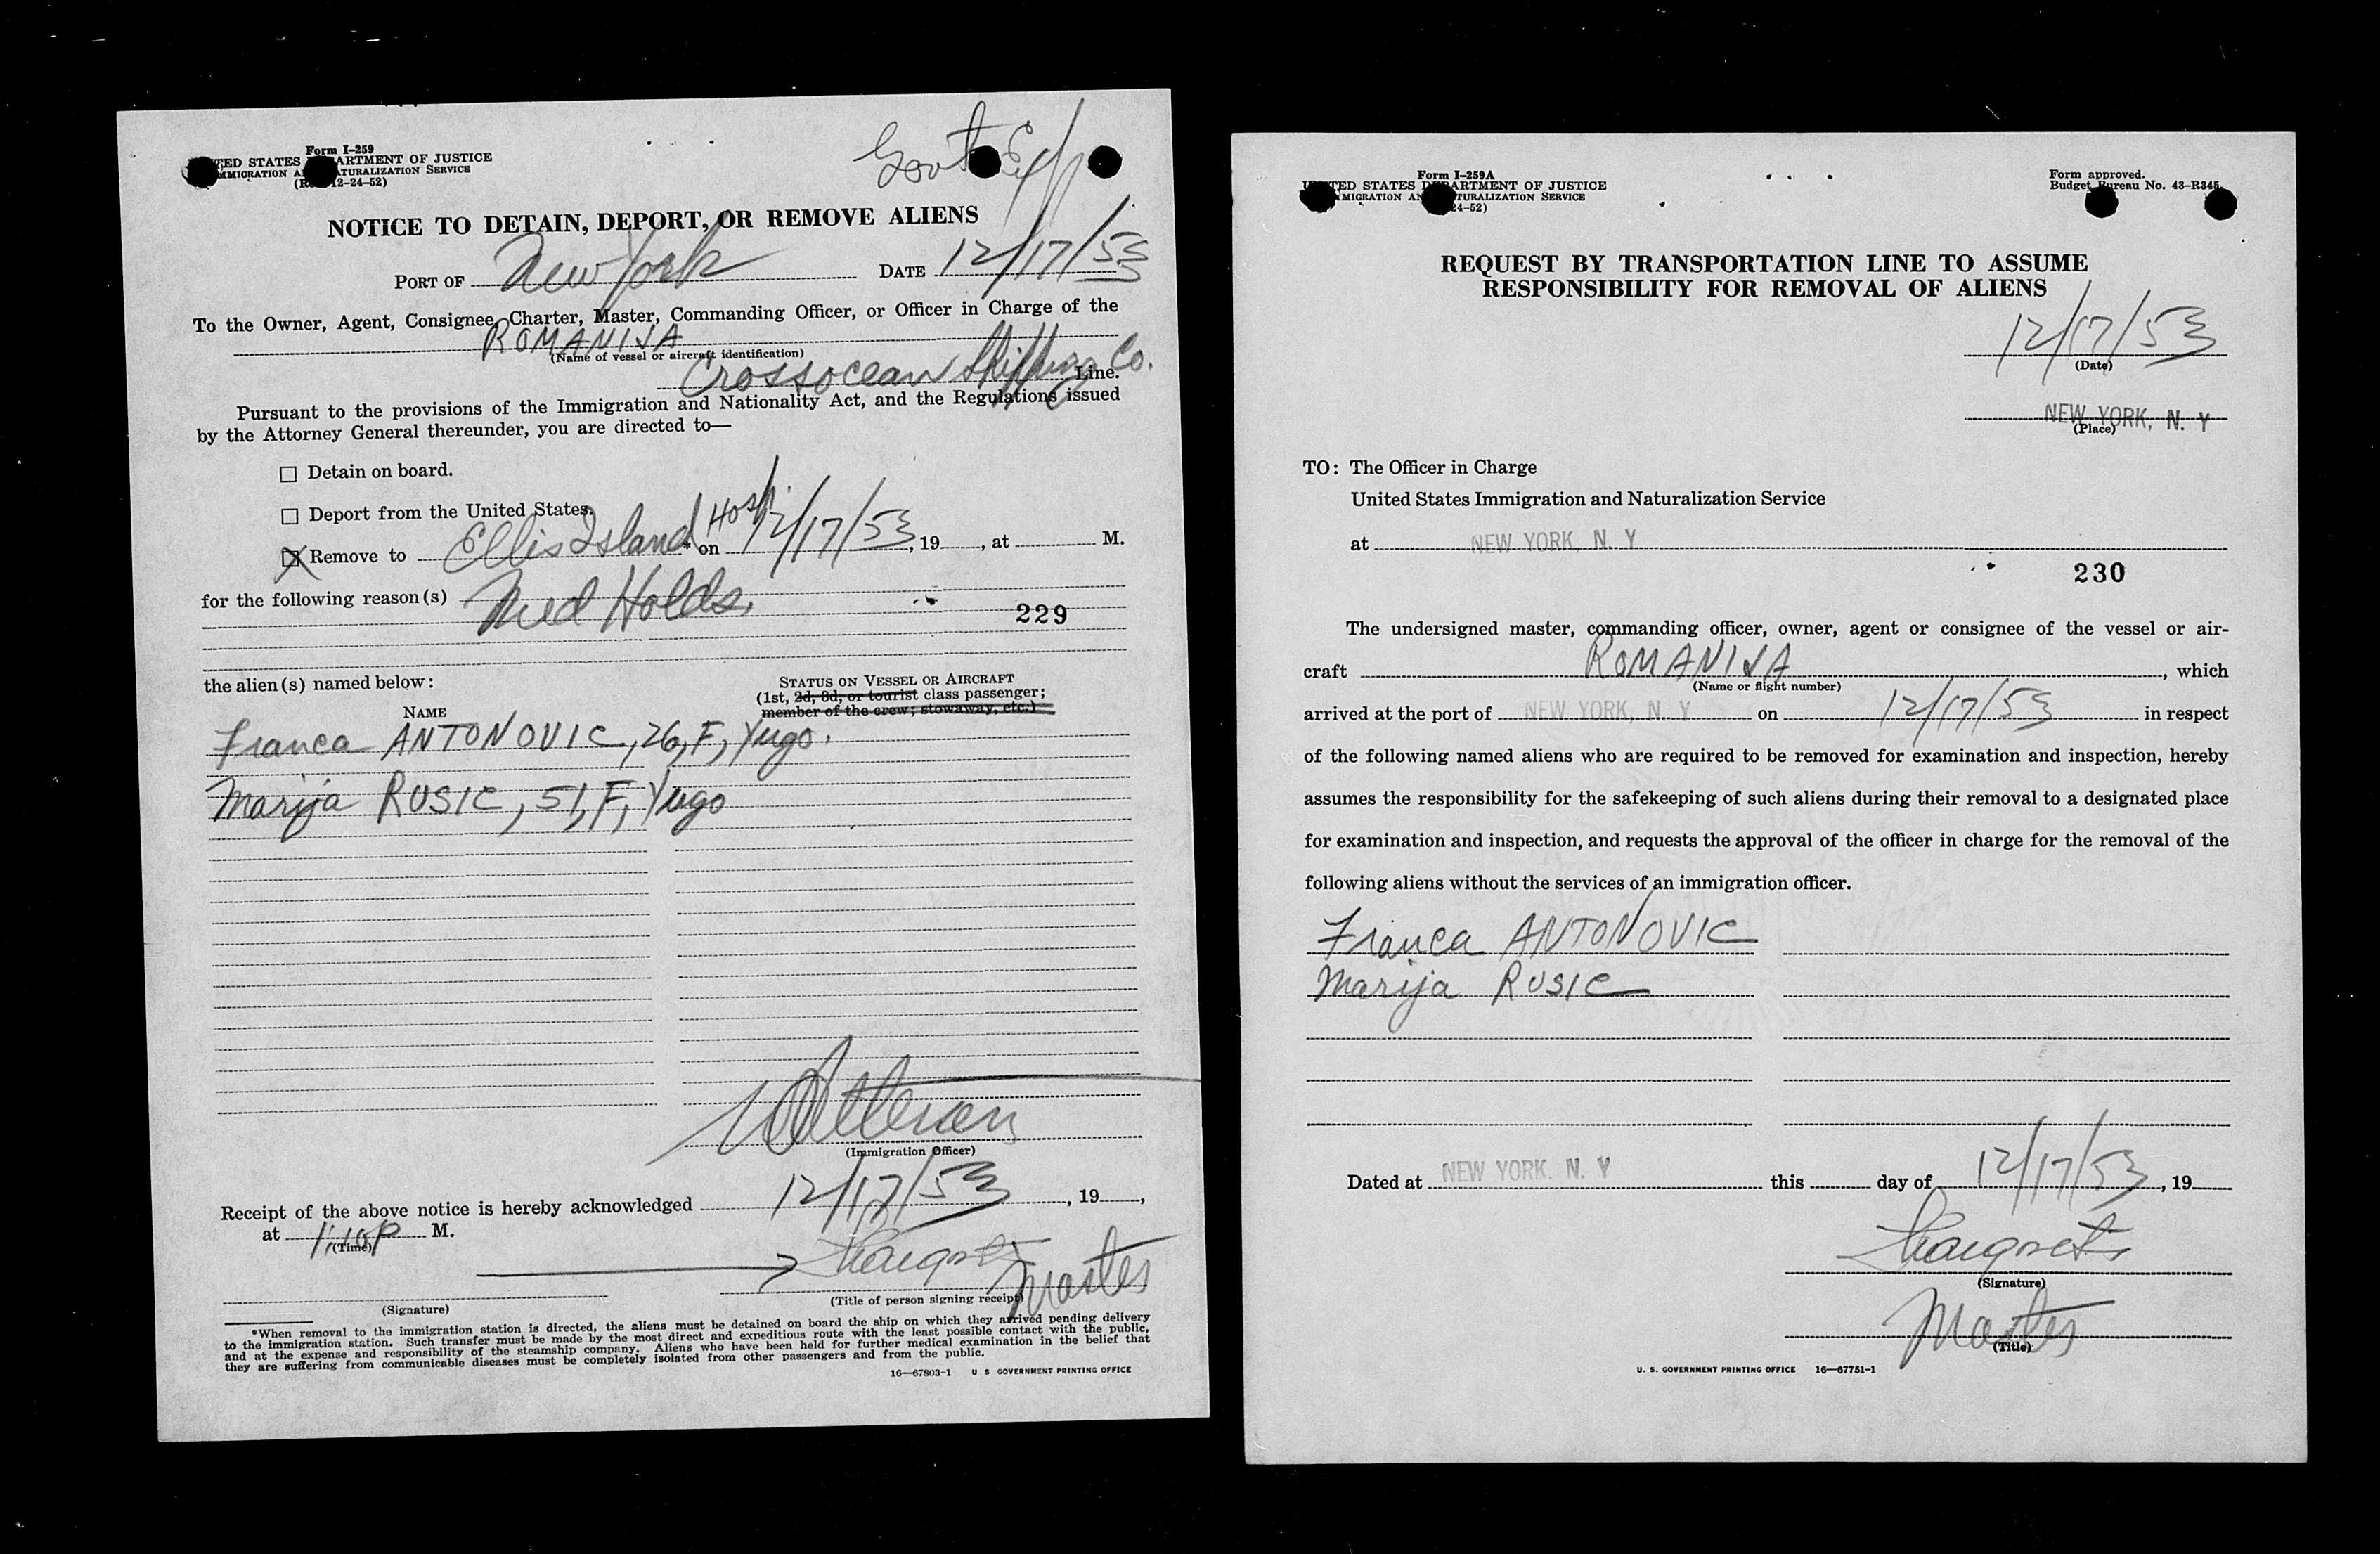 Form I-259
UNITED STATES DEPARTMENT OF JUSTICE
IMMIGRATION AND NATURALIZATION SERVICE
12-24-52)
Govt
NOTICE TO DETAIN, DEPORT, OR REMOVE ALIENS
PORT OF New York DATE 12/17/53
To the Owner, Agent, Consignee, Charter, Master, Commanding Officer, or Officer in Charge of the
ROMANIJA
(Name of vessel or aircraft identification)
Crossocean Shipping Co. Line.
Pursuant to the provisions of the Immigration and Nationality Act, and the Regulations issued
by the Attorney General thereunder, you are directed to—
☐ Detain on board.
☐ Deport from the United States.
☒ Remove to Ellis Island Hosp. * on 12/17/53, 19, at M.
for the following reason(s) Med Holds.
229
the alien(s) named below:
STATUS ON VESSEL OR AIRCRAFT
(1st, 2d, 3d, or tourist class passenger;
member of the crew; stowaway, etc.)
NAME
Franca ANTONOVIC, 26, F, Yugo.
Marija RUSIC, 51, F, Yugo
(Immigration Officer)
Receipt of the above notice is hereby acknowledged 12/17/53, 19,
at 1:10 P M.
(Time)
Master
(Signature)
(Title of person signing receipt)
*When removal to the immigration station is directed, the aliens must be detained on board the ship on which they arrived pending delivery
to the immigration station. Such transfer must be made by the most direct and expeditious route with the least possible contact with the public,
and at the expense and responsibility of the steamship company. Aliens who have been held for further medical examination in the belief that
they are suffering from communicable diseases must be completely isolated from other passengers and from the public.
16—67803-1 U S GOVERNMENT PRINTING OFFICE
Form I-259A
UNITED STATES DEPARTMENT OF JUSTICE
IMMIGRATION AND NATURALIZATION SERVICE
24-52)
Form approved.
Budget Bureau No. 43-R345.
REQUEST BY TRANSPORTATION LINE TO ASSUME
RESPONSIBILITY FOR REMOVAL OF ALIENS
12/17/53
(Date)
NEW YORK, N. Y
(Place)
TO: The Officer in Charge
United States Immigration and Naturalization Service
at NEW YORK, N. Y
230
The undersigned master, commanding officer, owner, agent or consignee of the vessel or air-
craft ROMANIJA, which
(Name or flight number)
arrived at the port of NEW YORK, N. Y on 12/17/53 in respect
of the following named aliens who are required to be removed for examination and inspection, hereby
assumes the responsibility for the safekeeping of such aliens during their removal to a designated place
for examination and inspection, and requests the approval of the officer in charge for the removal of the
following aliens without the services of an immigration officer.
Franca ANTONOVIC
Marija RUSIC
Dated at NEW YORK. N. Y this day of 12/17/53, 19
(Signature)
Master
(Title)
U. S. GOVERNMENT PRINTING OFFICE 16—67751-1